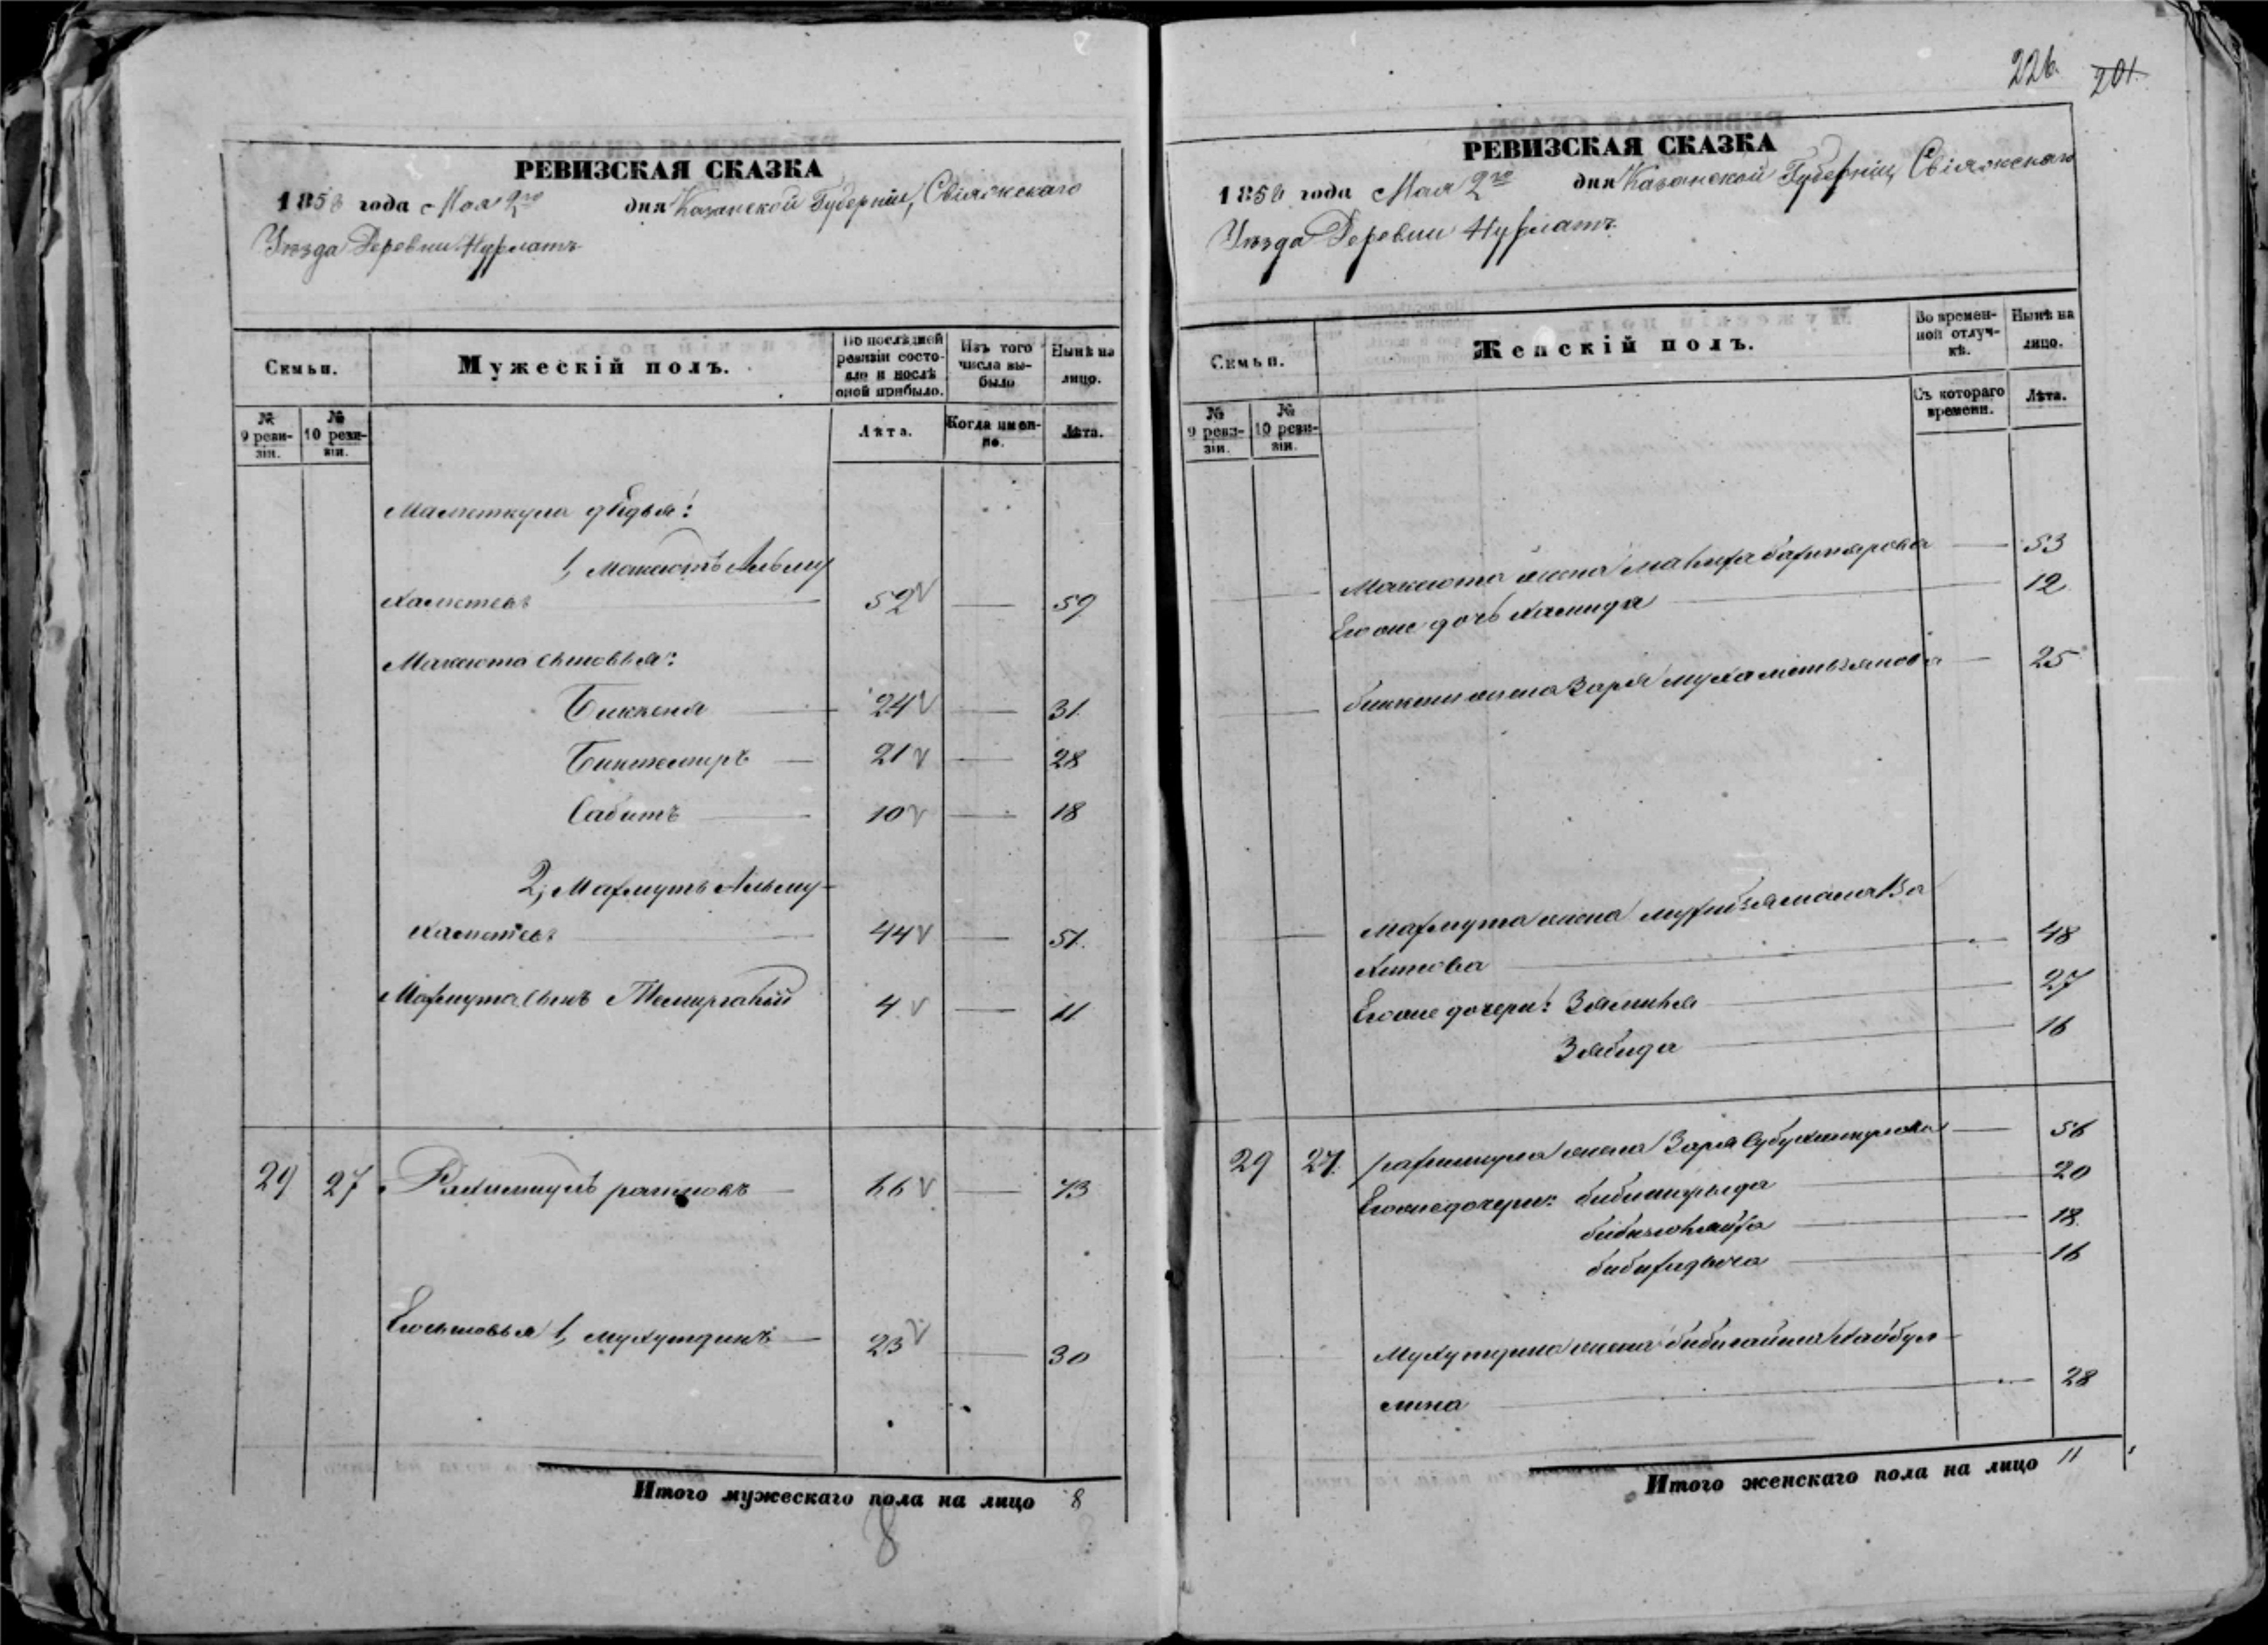 РЕВИЗСКАЯ СКАЗКА
1858 года Мая 2го дня Казанской Губерніи, Свіяжскаго
Уѣзда Деревни Нурлатъ
Семьи.
Мужескій полъ.
По послѣдней ревизіи состояло и послѣ оной прибыло.
Изъ того числа выбыло
Нынѣ на лицо.
№ 9 ревизіи.
№ 10 ревизіи.
Лѣта.
Когда именно.
Лѣта.
Маметкула дядья:
1, Максютъ Альму
хаметевъ 52 59
Максюта сыновья:
Бикченя 24 31
Биктемиръ 21 28
Сабитъ 10 18
2, Махмутъ Альму-
хаметевъ 44 51
Махмута сынъ Темиргалій 4 11
29 27 Рахимкулъ 66 73
Его сыновья 1, мухутдинъ 23 30
Итого мужескаго пола на лицо 8
8
226. 201.
РЕВИЗСКАЯ СКАЗКА
1858 года Мая 2го дня Казанской Губерніи, Свіяжскаго
Уѣзда Деревни Нурлатъ.
Семьи.
Женскій полъ.
Во временной отлучкѣ.
Нынѣ на лицо.
№ 9 ревизіи.
№ 10 ревизіи.
Съ котораго времени.
Лѣта.
Максюта жена 53
Его же дочь Хамида 12
жена Заря мухаметьзянова 25
Махмута жена
48
Его же дочери: 27
Зябида 16
29 27. жена Заря 56
Его же дочери: 20
18
16
жена Хайбул-
лина 28
Итого женскаго пола на лицо 11